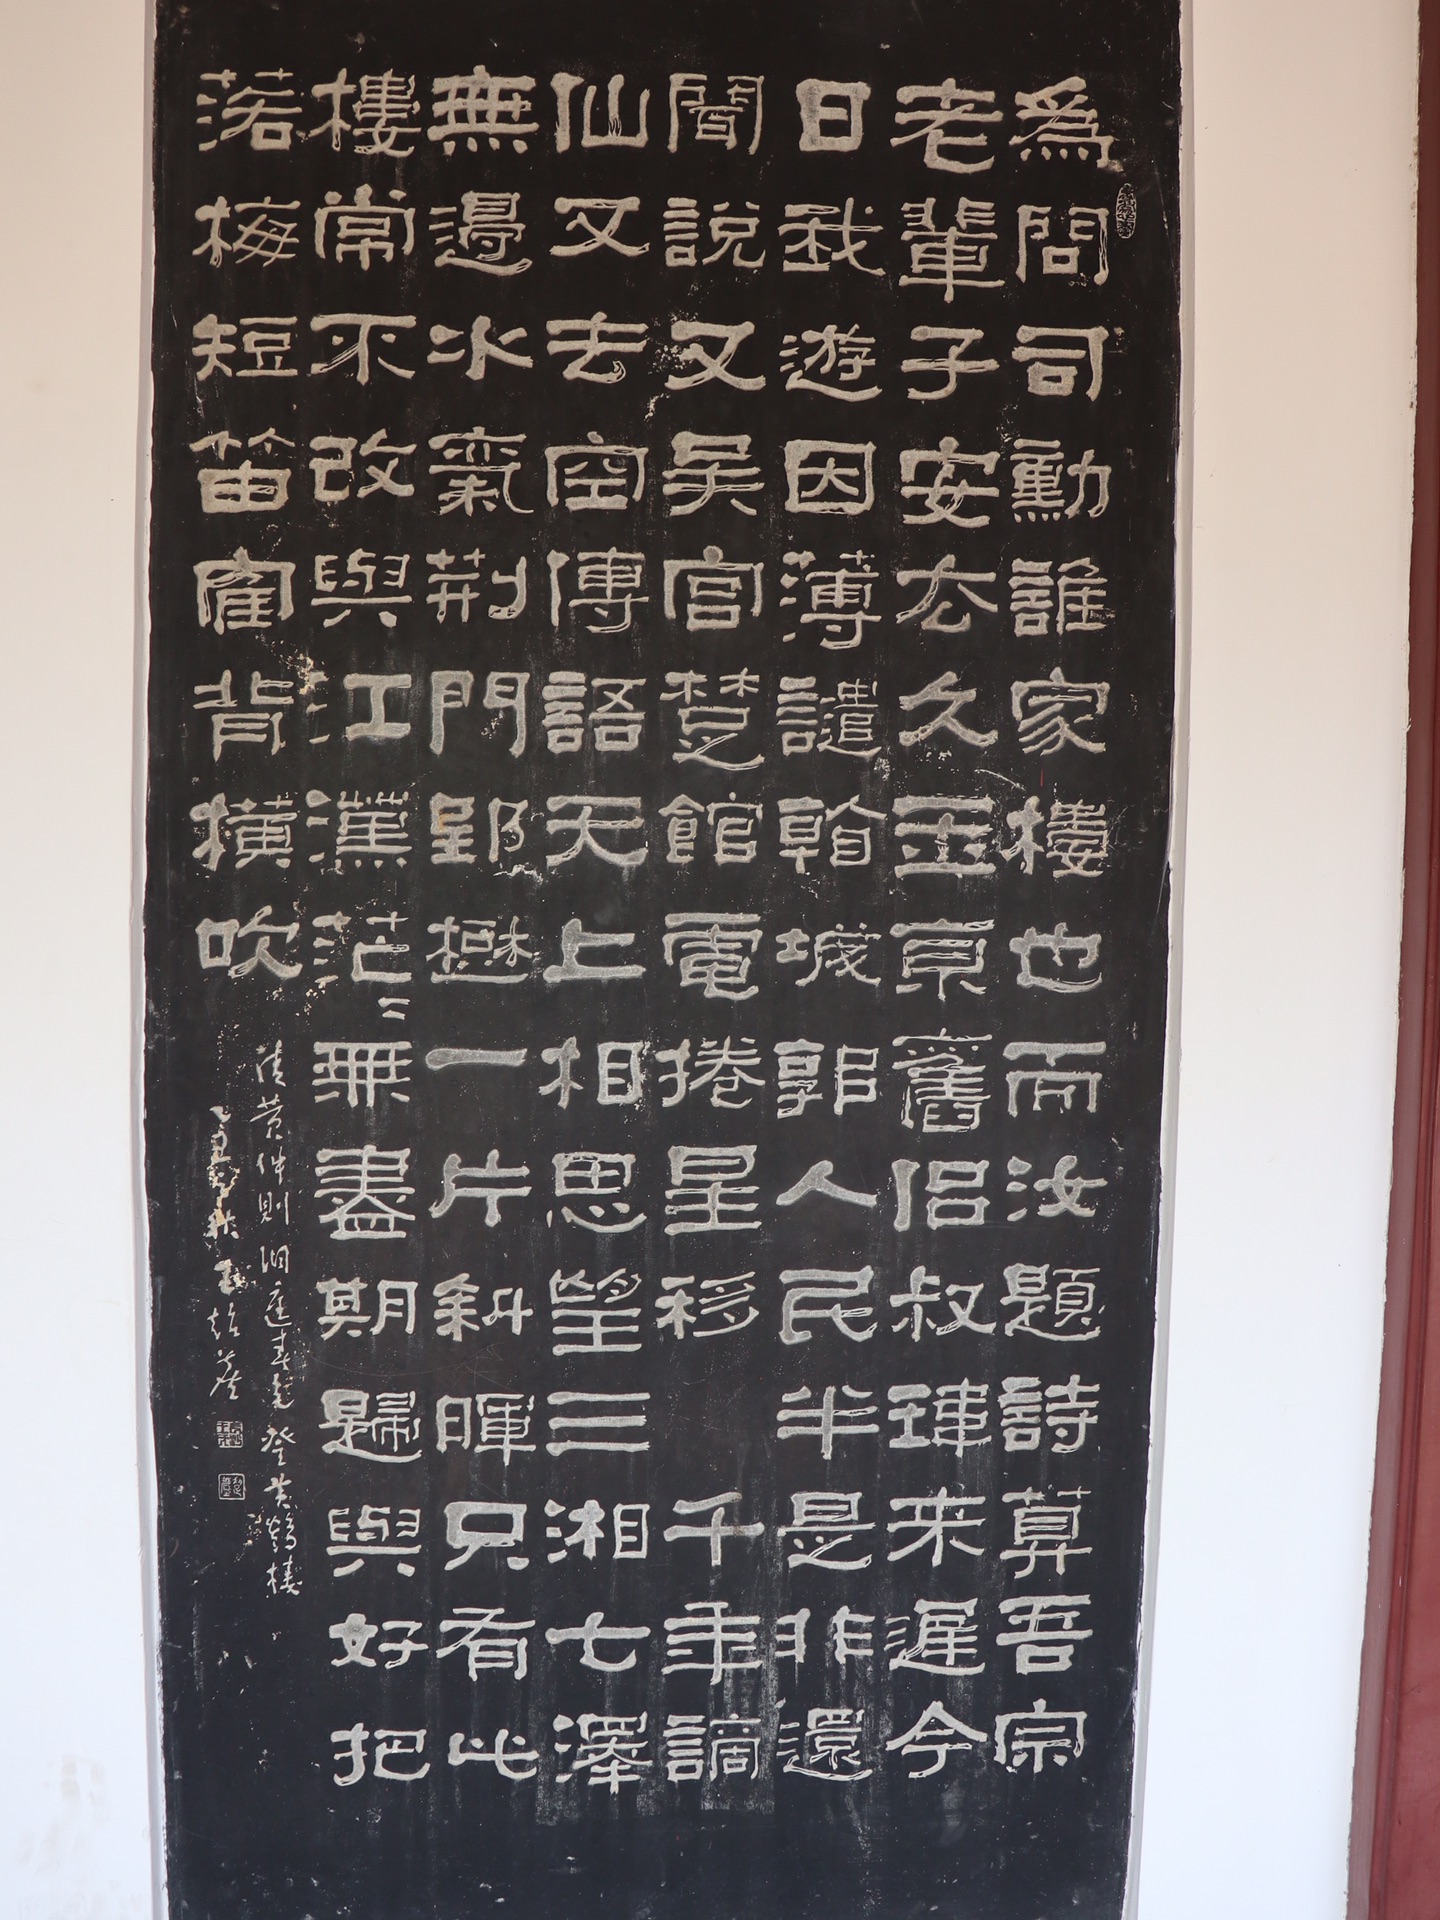 為問司勳誰家樓也而汝題詩算吾宗
老輩子安去久玉京舊侶叔瑋来遲今
日我遊因薄譴城郭人民半是非還
聞說又吴宫楚館電捲星移千年謫
仙又去空傳語天上相思望三湘七澤
無邊水氣荆門郢一片斜暉只有此
樓常不改與江漢茫二無盡期歸與好把
落梅短笛隺背横吹
清黄仲則洞庭春慢登黄鶴樓
秋王超塵